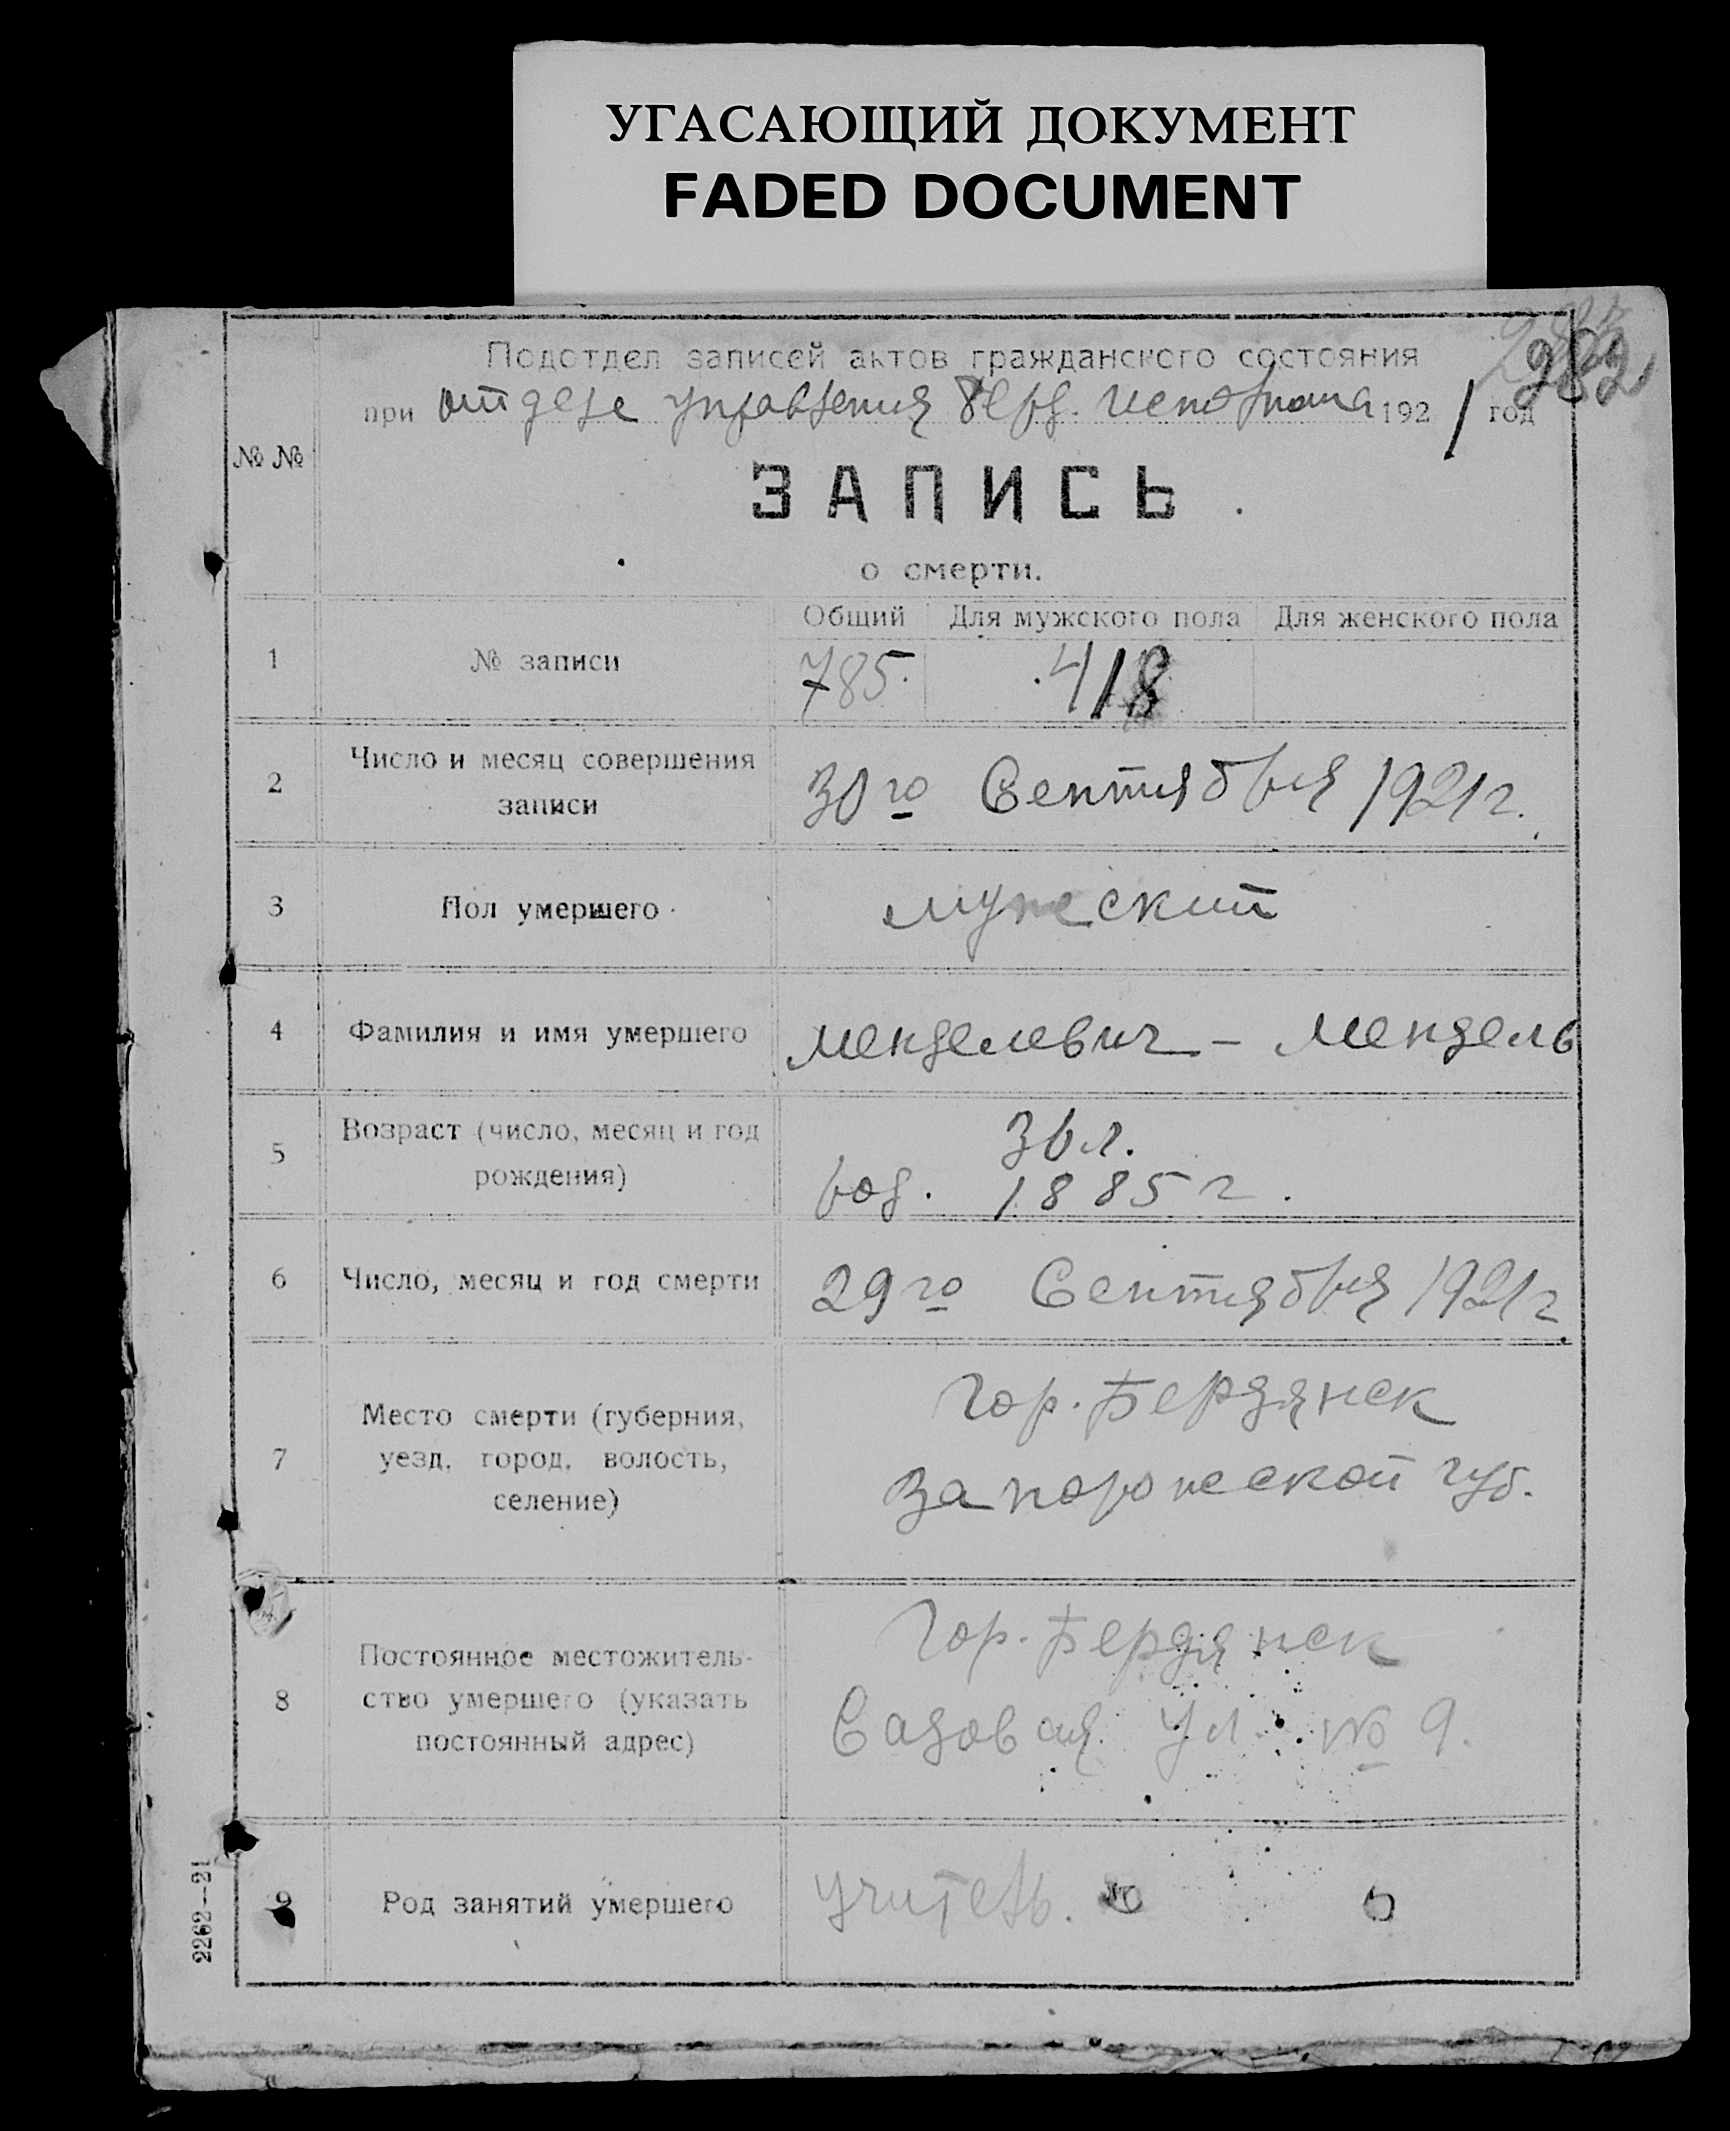 УГАСАЮЩИЙ ДОКУМЕНТ
FADED DOCUMENT
982
Подотдел записей актов гражданского состояния
при отделе управления Берд. исполкома 1921 год
№ №
ЗАПИСЬ
о смерти.
Общий Для мужского пола Для женского пола
1 № записи 785. 418
2 Число и месяц совершения
записи
30го Сентября 1921 г.
3 Пол умершего мужеский
4 Фамилия и имя умершего Менделевич - Мендель
5 Возраст (число, месяц и год
рождения)
36 л.
род. 1885 г.
6 Число, месяц и год смерти 29го Сентября 1921 г.
7 Место смерти (губерния,
уезд, город, волость,
селение)
Гор. Бердянск
Запорожской губ.
8 Постоянное местожитель-
ство умершего (указать
постоянный адрес)
Гор. Бердянск
Садовая ул. № 9.
9 Род занятий умершего учитель.
2262—21